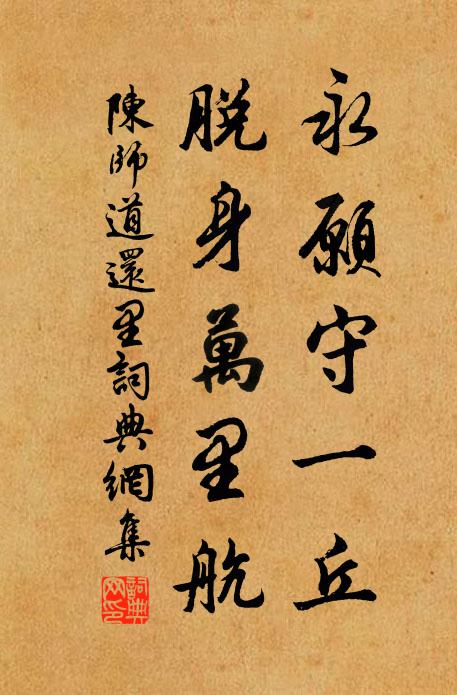 永願守一丘
脫身萬里航
陳師道還里詞典網集
詞典網印